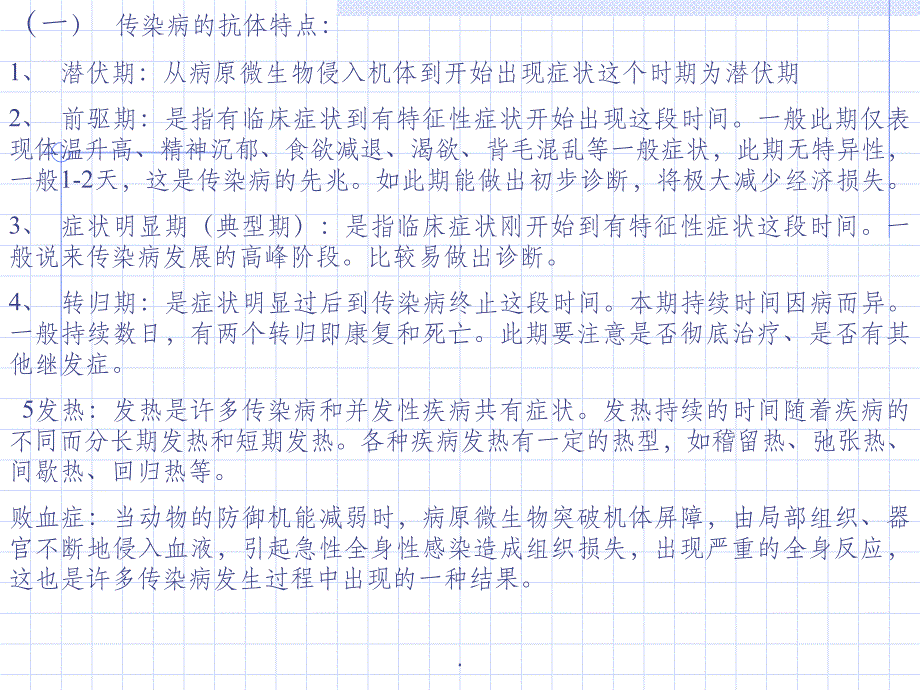 （一）　传染病的抗体特点：
1、 潜伏期：从病原微生物侵入机体到开始出现症状这个时期为潜伏期
2、 前驱期：是指有临床症状到有特征性症状开始出现这段时间。一般此期仅表
现体温升高、精神沉郁、食欲减退、渴欲、背毛混乱等一般症状，此期无特异性，
一般1-2天，这是传染病的先兆。如此期能做出初步诊断，将极大减少经济损失。
3、 症状明显期（典型期）：是指临床症状刚开始到有特征性症状这段时间。一
般说来传染病发展的高峰阶段。比较易做出诊断。
4、 转归期：是症状明显过后到传染病终止这段时间。本期持续时间因病而异。
一般持续数日，有两个转归即康复和死亡。此期要注意是否彻底治疗、是否有其
他继发症。
5发热：发热是许多传染病和并发性疾病共有症状。发热持续的时间随着疾病的
不同而分长期发热和短期发热。各种疾病发热有一定的热型，如稽留热、弛张热、
间歇热、回归热等。
败血症：当动物的防御机能减弱时，病原微生物突破机体屏障，由局部组织、器
官不断地侵入血液，引起急性全身性感染造成组织损失，出现严重的全身反应，
这也是许多传染病发生过程中出现的一种结果。
.